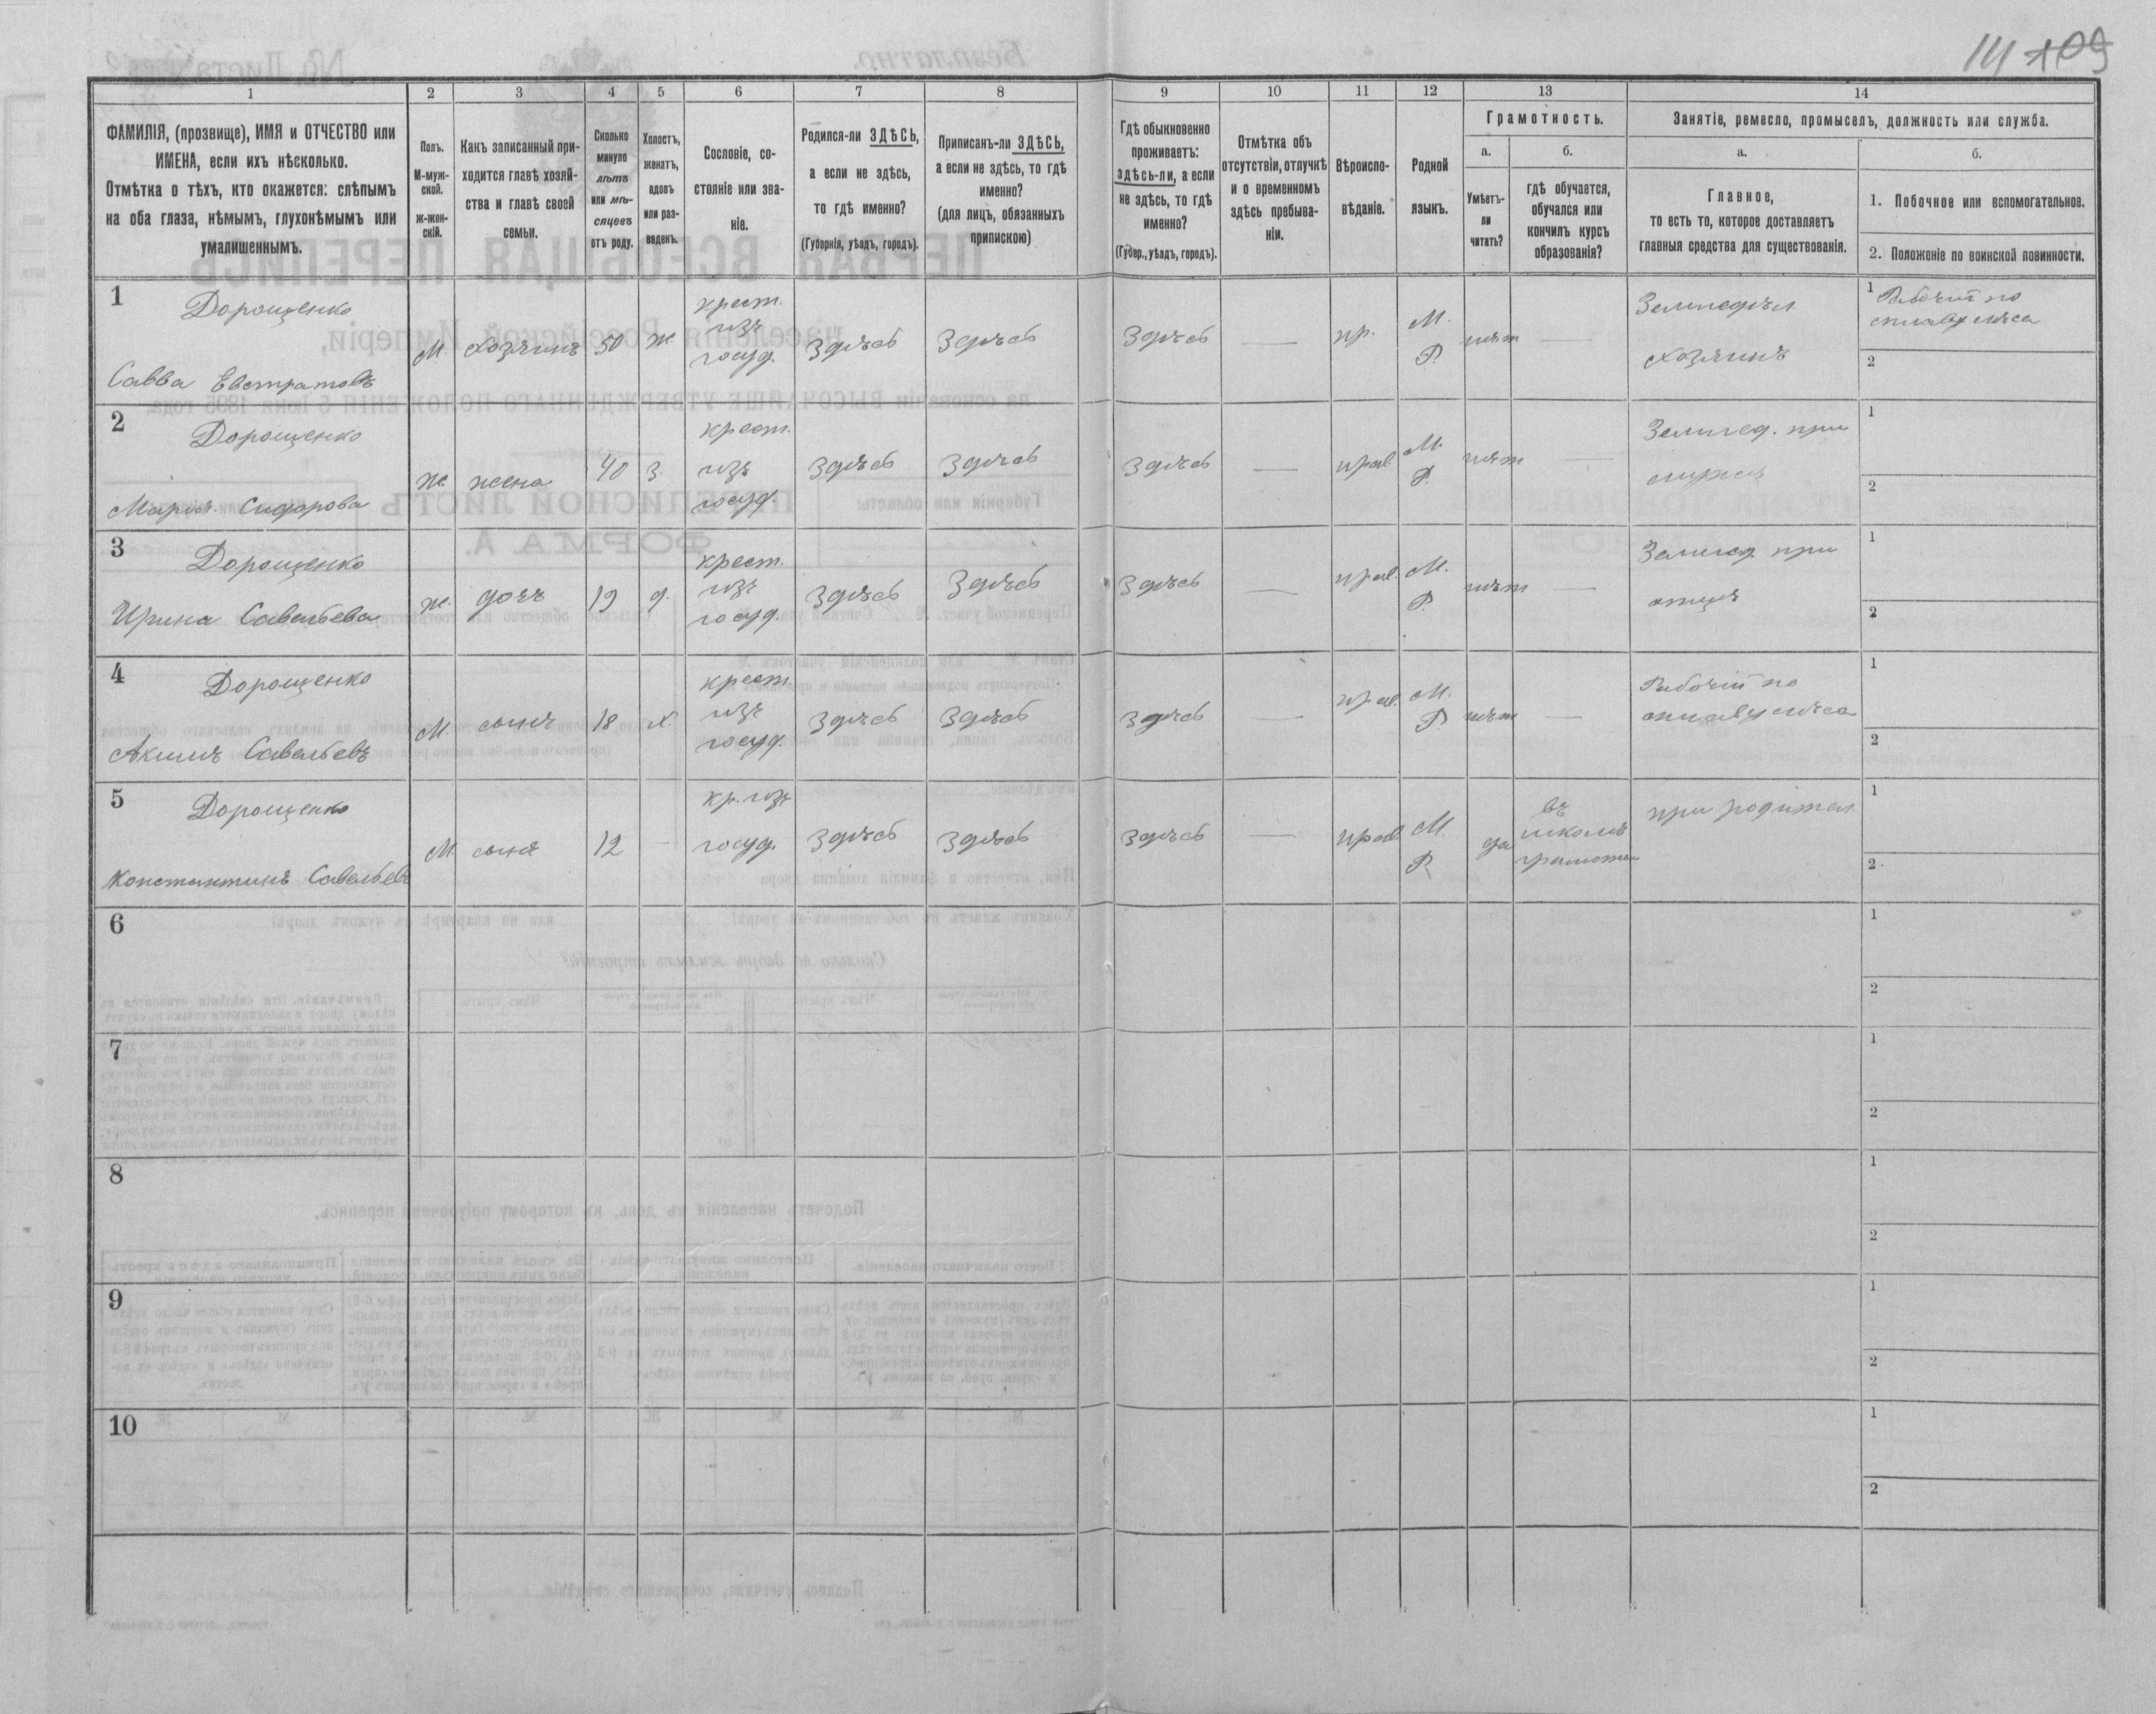 111 109
1
2
3
4
5
6
7
8
9
10
11
12
13
14
ФАМИЛІЯ, (прозвище), ИМЯ и ОТЧЕСТВО или
ИМЕНА, если ихъ нѣсколько.
Отмѣтка о тѣхъ, кто окажется: слѣпымъ
на оба глаза, нѣмымъ, глухонѣмымъ или
умалишеннымъ.
Полъ.
М-муж-
ской.
ж-жен-
скій.
Какъ записанный при-
ходится главѣ хозяй-
ства и главѣ своей
семьи.
Сколько
минуло
лѣтъ
или мѣ-
сяцевъ
отъ роду.
Холостъ,
женатъ,
вдовъ
или раз-
веденъ.
Сословіе, со-
стояніе или зва-
ніе.
Родился-ли ЗДѢСЬ,
а если не здѣсь,
то гдѣ именно?
(Губернія, уѣздъ, городъ).
Приписанъ-ли ЗДѢСЬ,
а если не здѣсь, то гдѣ
именно?
(для лицъ, обязанныхъ
припискою)
Гдѣ обыкновенно
проживаетъ:
здѣсь-ли, а если
не здѣсь, то гдѣ
именно?
(Губер., уѣздъ, городъ).
Отмѣтка объ
отсутствіи, отлучкѣ
и о временномъ
здѣсь пребыва-
ніи.
Вѣроиспо-
вѣданіе.
Родной
языкъ.
Грамотность.
а.
Умѣетъ-
ли
читать?
б.
гдѣ обучается,
обучался или
кончилъ курсъ
образованія?
Занятіе, ремесло, промыселъ, должность или служба.
а.
Главное,
то есть то, которое доставляетъ
главныя средства для существованія.
б.
1. Побочное или вспомогательное.
2. Положеніе по воинской повинности.
1
Дорощенко
Савва Евстратовъ
М.
Хозяинъ
50
ж
крест.
изъ
госуд.
Здѣсь
Здѣсь
Здѣсь
—
пр.
М.
Р.
нѣт
—
Земледѣл
хозяинъ
1 Рабочій по
сплаву лѣса
2
2
Дорощенко
Марья Сидорова
ж.
жена
40
З.
крест.
изъ
госуд.
Здѣсь
Здѣсь
Здѣсь
—
прав.
М.
Р.
нѣт
—
Землед. при
мужѣ
1
2
3
Дорощенко
Ирина Савельева
ж.
дочь
19
д.
крест.
изъ
госуд.
Здѣсь
Здѣсь
Здѣсь
—
прав.
М.
Р.
нѣт
—
Землед. при
отцѣ
1
2
4
Дорощенко
Акимъ Савельевъ
М.
сынъ
18
х.
крест.
изъ
госуд.
Здѣсь
Здѣсь
Здѣсь
—
прав.
М.
Р.
нѣт
—
Рабочій по
сплаву лѣса
1
2
5
Дорощенко
Константинъ Савельевъ
М.
сынъ
12
—
кр. изъ
госуд.
Здѣсь
Здѣсь
Здѣсь
—
прав.
М.
Р.
да
въ
школѣ
грамоты
при родител.
1
2
6
1
2
7
1
2
8
1
2
9
1
2
10
1
2